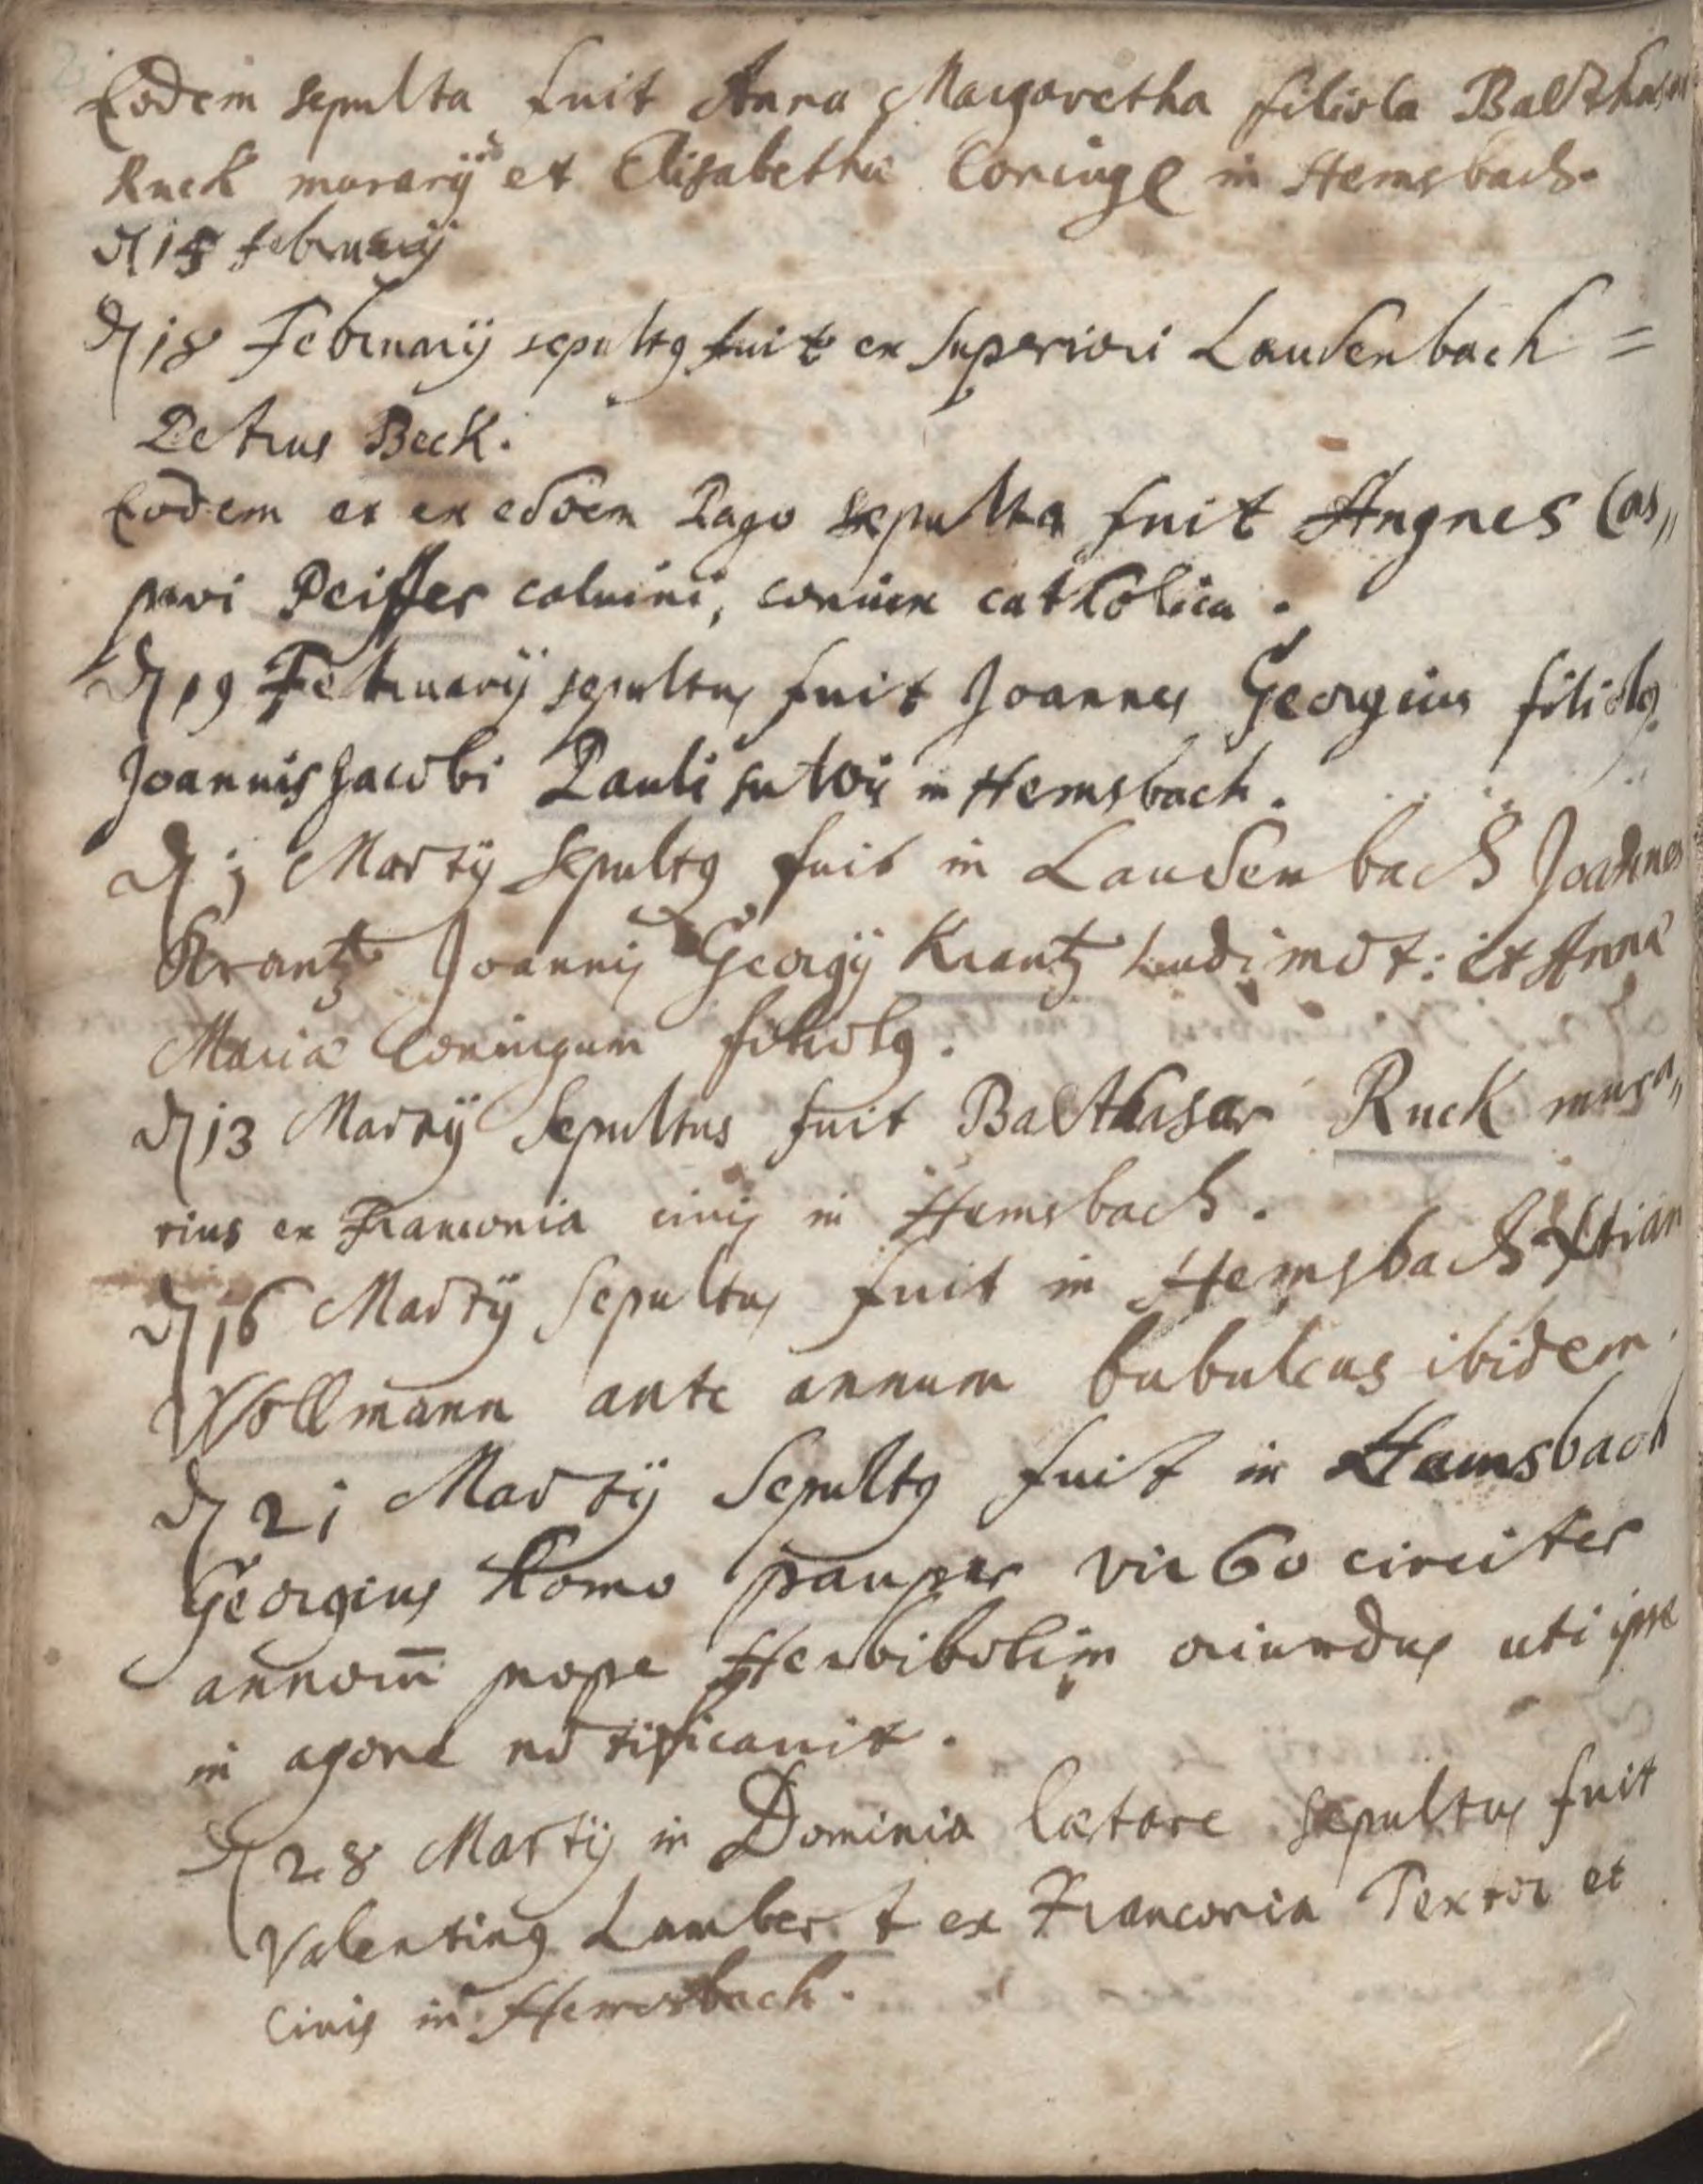 Eodem sepulta fuit Anna Margaretha filiola Balthasar
Ruck murarij et Elisabetha Coniuge in Hemsbach.
d 15 february
d 18 February sepultq fuit ex superiori Laudenbach =
Petrus Beck.
Eodem et ex eodem Pago sepulta fuit Angnes Cas„
pari Peiffer caluini, coniux catholica.
d 19 February sepultus fuit Joannes Georgius filiolq
Joannis Jacobi Pauli sutoris in Hemsbach.
d j Martij sepultq fuit in Laudenbach Joannes
Krantz Joannis Georgij Krantz Ludimot: et Anna
Maria Coniugum filiolq.
d 13 Martij Sepultus fuit Balthasar Ruck mura„
rius ex Franconia civis in Hemsbach.
d 16 Martij sepultus fuit in Hemsbach Xstian
Wollmann ante annum bubulcus ibidem.
d 2j Martij Sepultq fuit in Hemsbach
Georgius homo pauper vir 60 circiter
annorū prope Herbibolim oriundus uti ipse
in agone notificauit.
d 28 Martij in Dominia lætare sepultus fuit
Valentinq Lambert ex Franconia Textor et
Ciuis in Hemsbach.